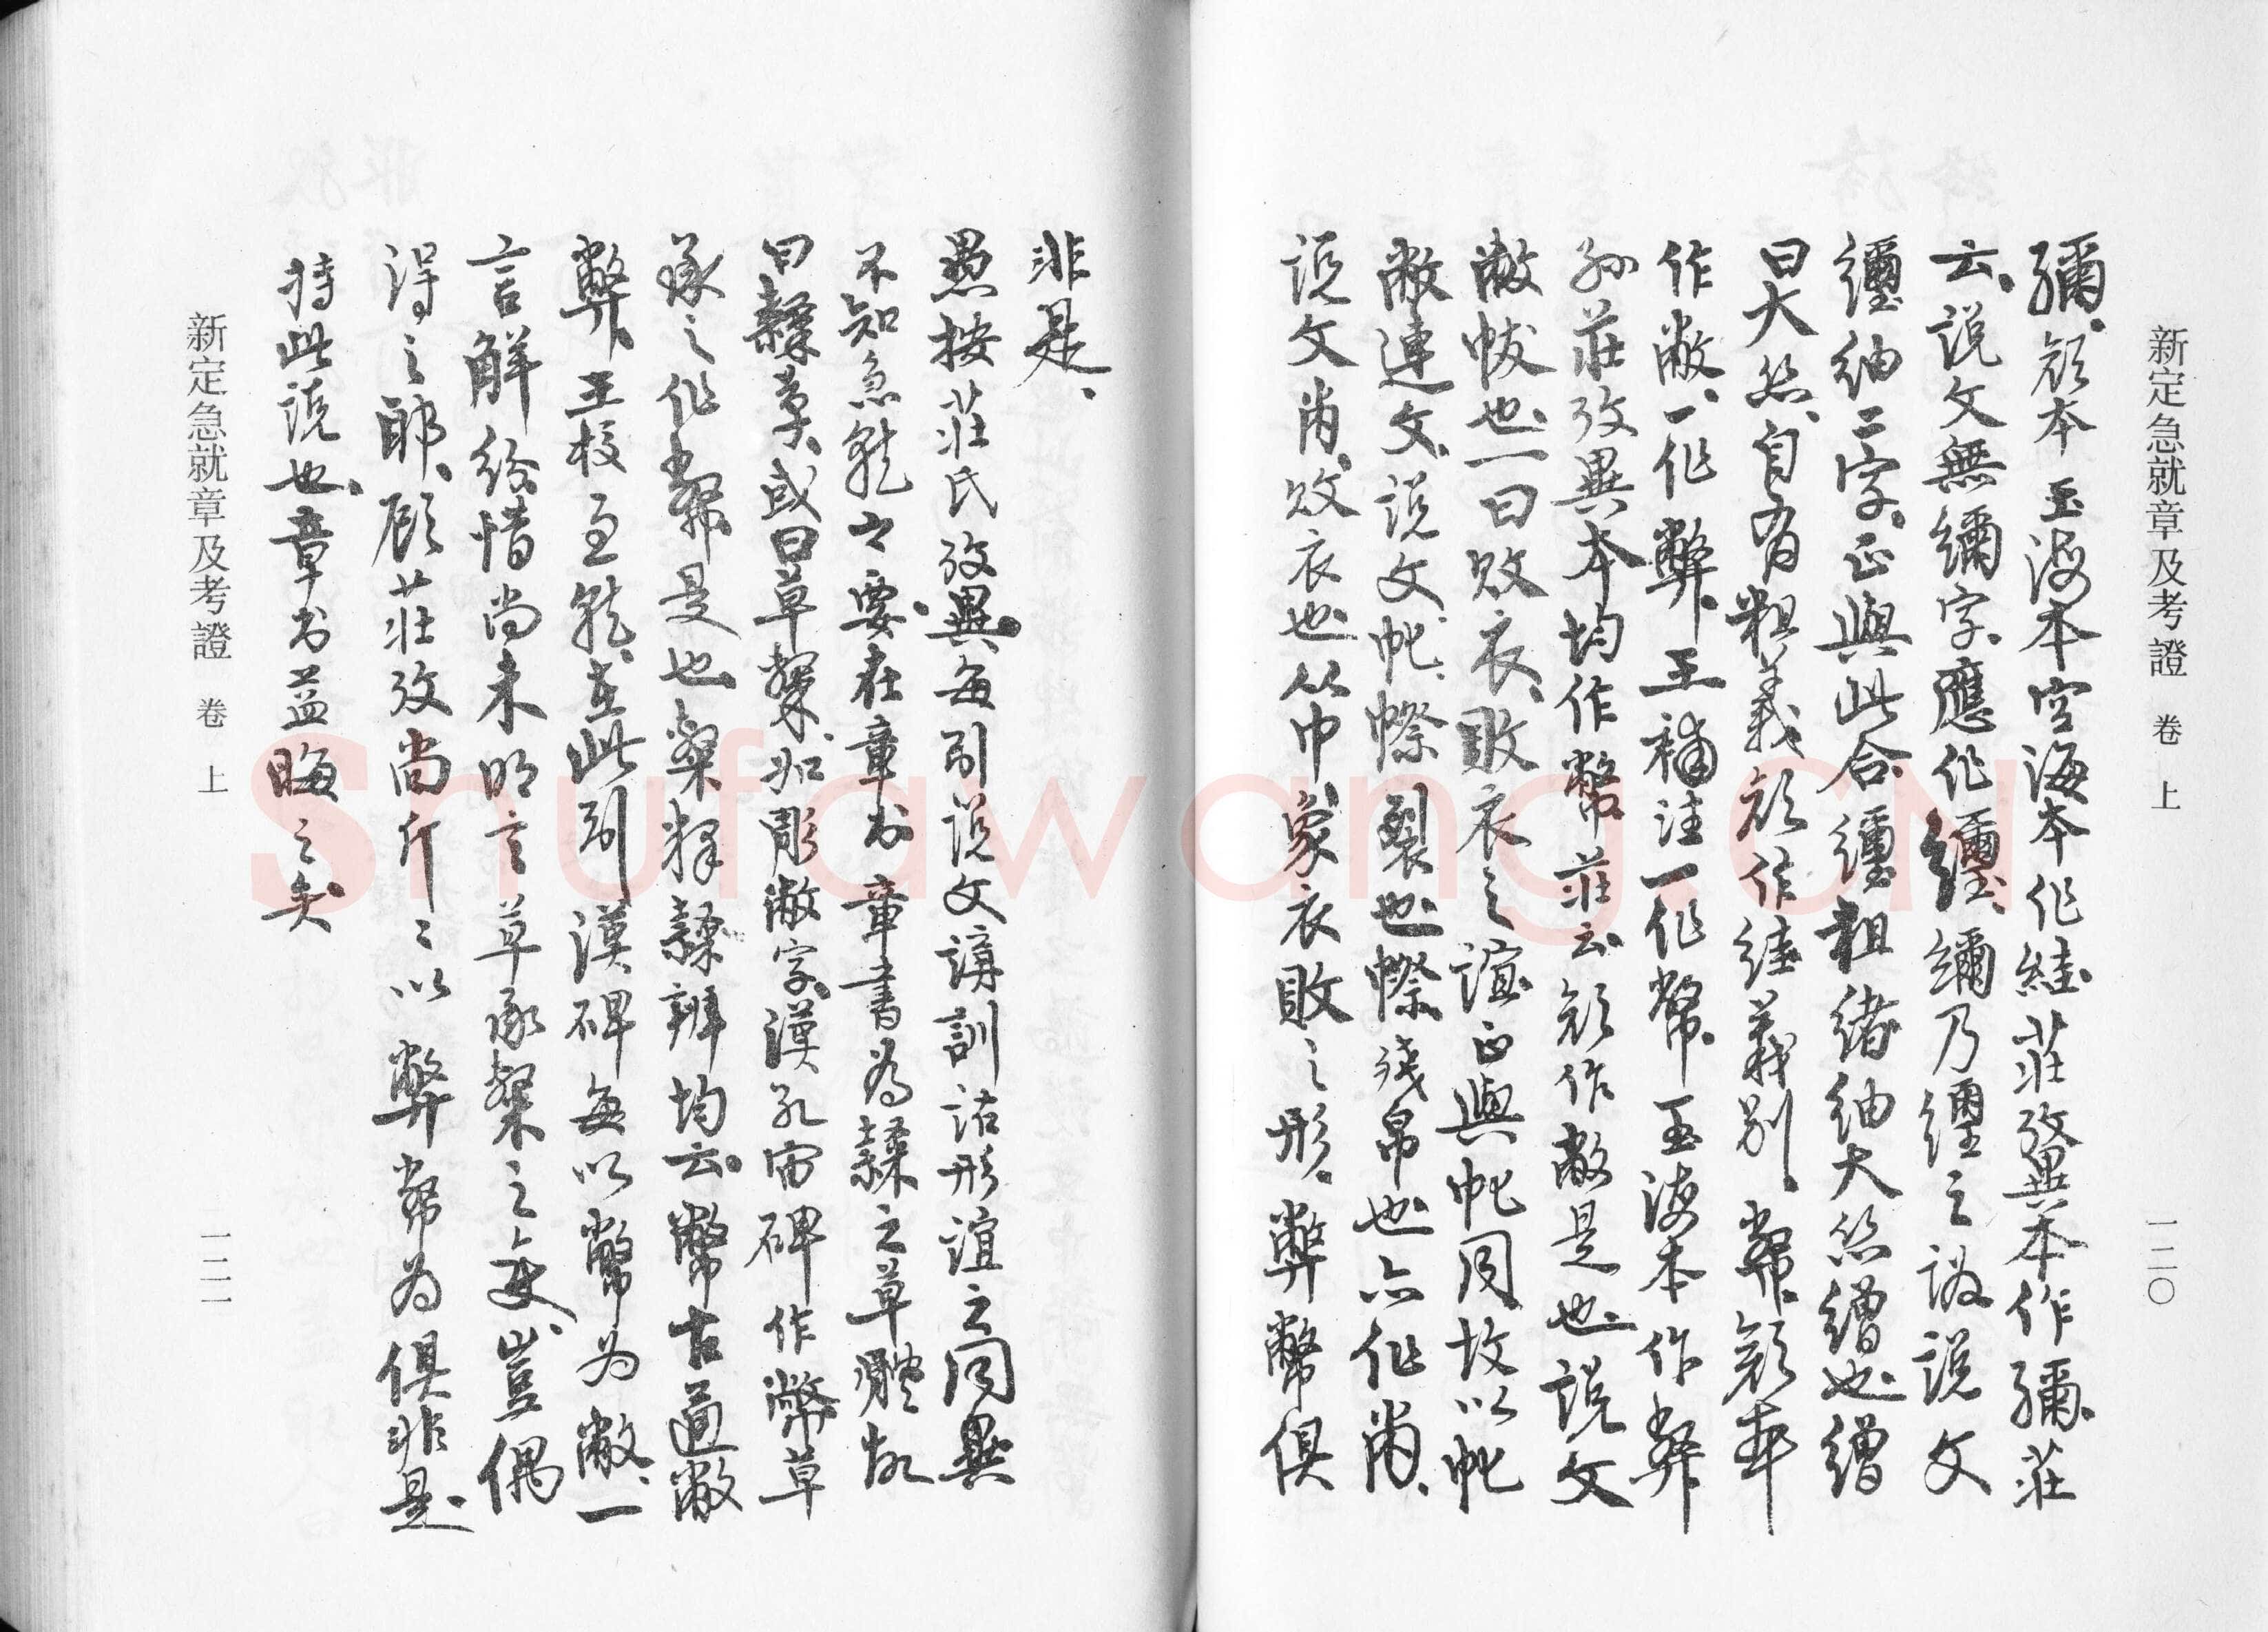 新定急就章及考證 卷上 一二〇
彌、顏本玉海本空海本作絓、莊攷異本作彌、莊
云、說文無繃字、應作纒、繃乃纒之譌、說文
纒紬二字、正與此合、纒粗緒紬大絲繒也、繒
曰大絲、自有粗義、顏作絓義別、幣、顏本
作敝、一作弊、王補注一作幣、玉海本作弊
孫莊攷異本均作幣、莊云、顏作敝是也、說文
敝帗也、一曰敗衣、敗衣之誼正與帊同、故以帊
敝連文、說文帊、幯裂也、幯殘帛也、亦作㡀、
說文㡀、敗衣也、从巾、象衣敗之形、弊幣俱
非是、
愚按莊氏攷異、每引說文講訓詁形誼之同異
不知急就之要、在章書、章書為隸之草體、故
曰隸章、或曰草隸、如彫敝字、漢孔宙碑作幣、草
承之作幣是也、桑釋隸辨均云、幣古通敝
弊、王校急就、在此引漢碑每以幣為敝、一
言解紛、惜尚未明言草承隸之變、豈偶
得之耶、顧莊攷尚斤斤以弊幣為俱非是、
持此說也、章書益晦之矣
新定急就章及考證 卷上 一二一
Shufawang.CN